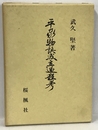 武久 堅
平家物語成立過程考
桜楓社